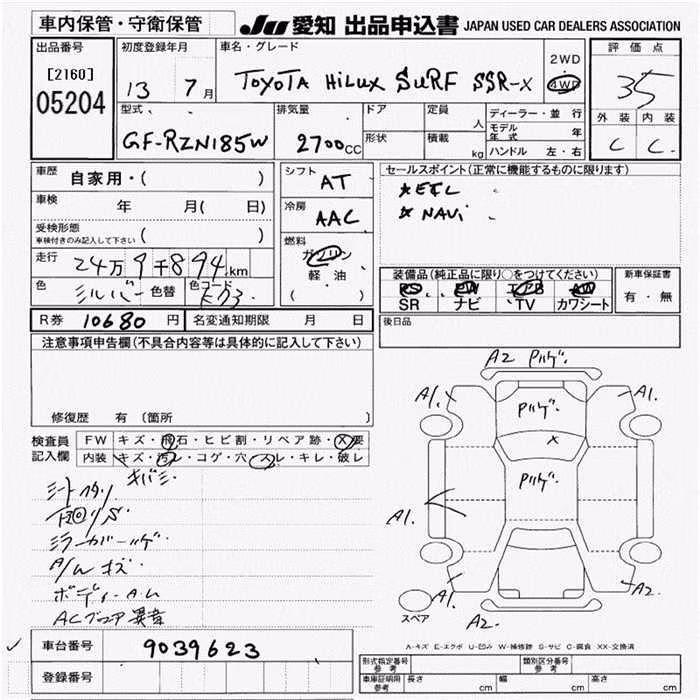 車内保管・守衛保管
JU 愛知 出品申込書 JAPAN USED CAR DEALERS ASSOCIATION
出品番号
[2160]
05204
初度登録年月
13 7月
車名・グレード
TOYOTA HiLUX SURF SSR-X
2WD
4WD
評価点
35
外装 内装
C C
型式
GF-RZN185W
排気量
2700cc
ドア
形状
定員 人
積載 kg
ディーラー・並行
モデル年式 年
ハンドル 左・右
車歴 自家用・( )
車検 年 月( 日)
受検形態
車検付きのみ記入して下さい ( )
走行 24万9千894km
色 シルバー 色替 色コード
シフト AT
冷房 AAC
燃料
ガソリン
軽油
( )
セールスポイント(正常に機能するものに限ります)
NAVi
装備品(純正品に限り○をつけてください)
PS PW エアB AW
SR ナビ TV カワシート
新車保証書
有・無
R券 10680 円 名変通知期限 月 日
後日品
注意事項申告欄(不具合内容等は具体的に記入して下さい)
修復歴 有(箇所
検査員記入欄
FW キズ・飛石・ヒビ割・リペア跡・X要
内装 キズ・汚レ・コゲ・穴・スレ・キレ・破レ
キバミ
A/W キズ
A2
A1. A1.
A1. A1.
A1. A2
A2.
スペア
A-キズ E-エクボ U-凹み W-補修跡 S-サビ C-腐食 XX-交換済
車台番号 9039623
登録番号
形式指定番号 参考
類別区分番号 参考
車庫証明用 参考 長さ cm 幅 cm 高さ cm